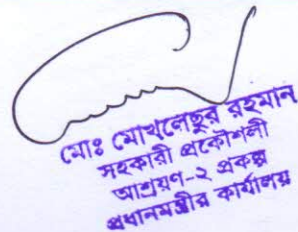 মোঃ মোখলেছুর রহমান
সহকারী প্রকৌশলী
আশ্রয়ণ-২ প্রকল্প
প্রধানমন্ত্রীর কার্যালয়